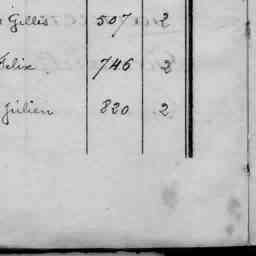 Gillis 507 2
Felix 746 2
Julien 820 2